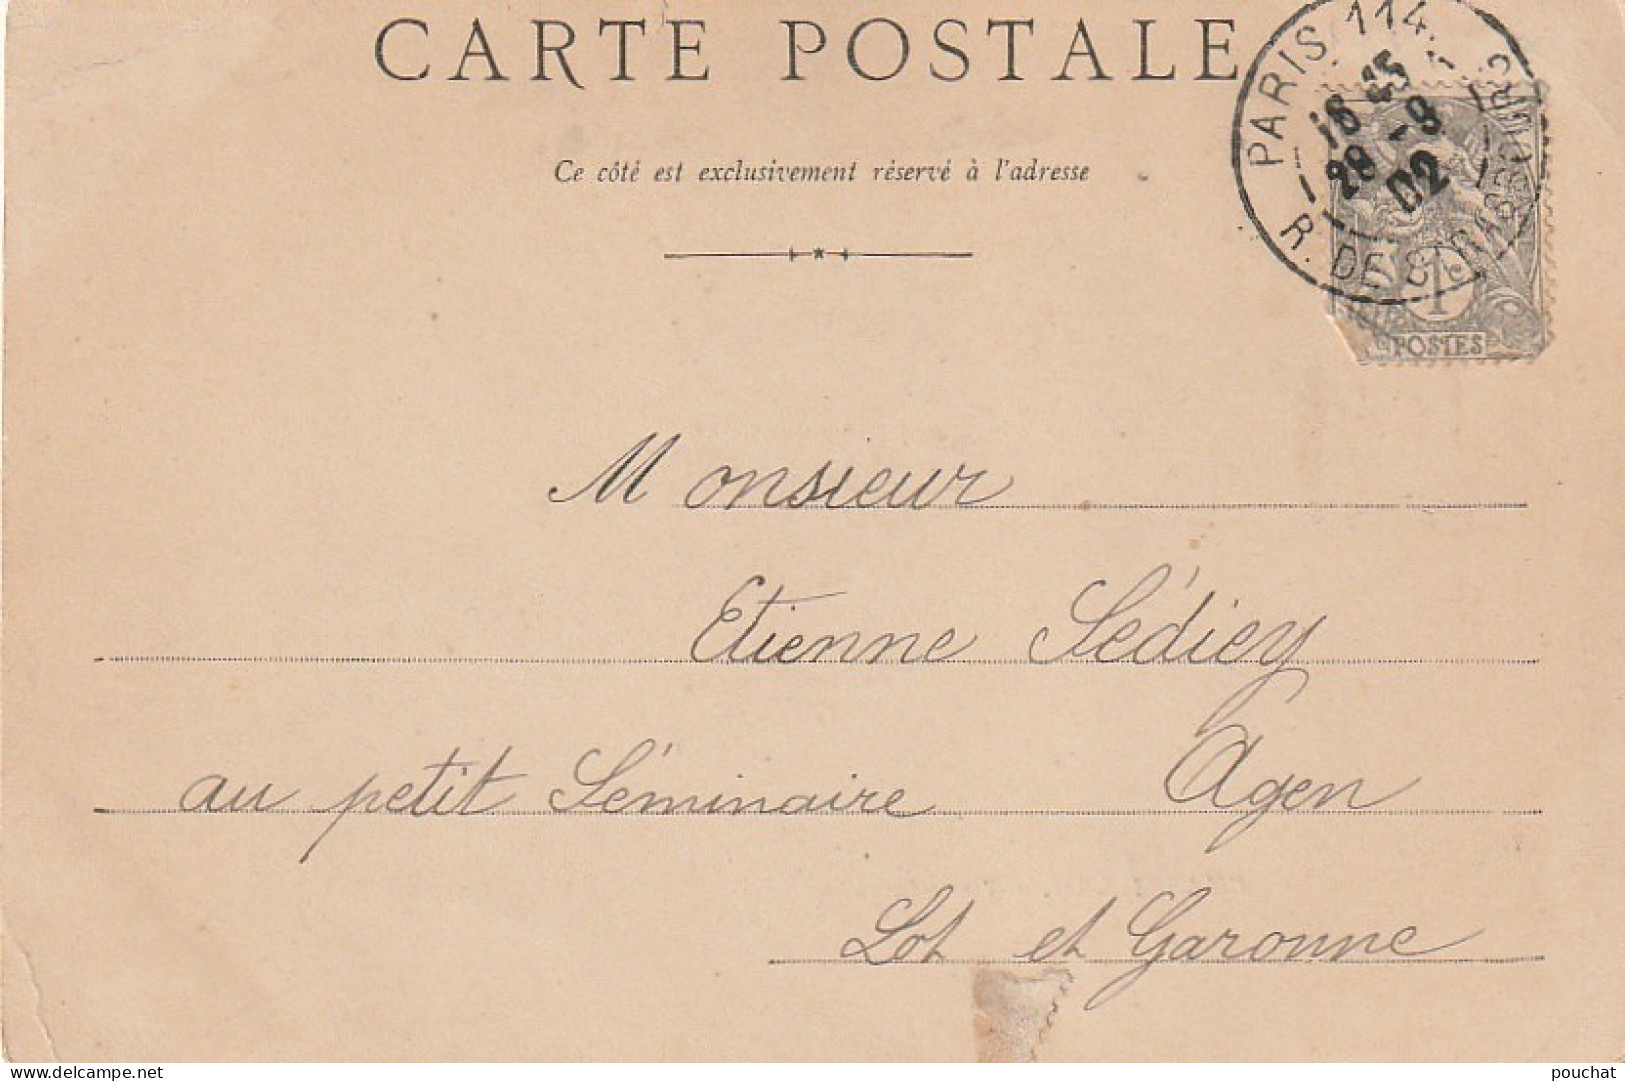 CARTE POSTALE
Ce côté est exclusivement réservé à l'adresse
PARIS 114
R. DE STRASBOURG
18 45
29 -9
02
1c
POSTES
Monsieur
Etienne Sédiey
au petit Séminaire Agen
Lot et Garonne
www.delcampe.net
pouchat